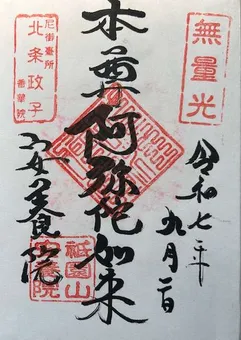 無量光
令和七年
九月二日
本尊
阿弥陀如来
尼御臺所
北条政子
香華院
安養院
祇園山
安養院